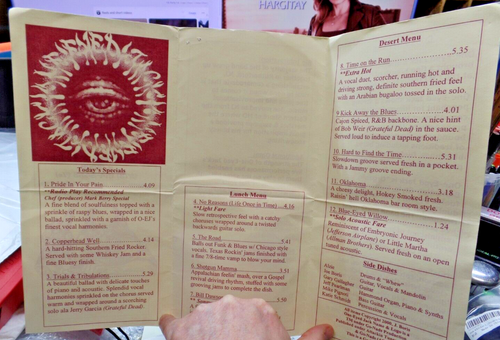 HARGITAY
Today's Specials
1. Pride In Your Pain 4.09
**Radio Play Recommended
Chef (producer) Mark Berry Special
A fine blend of soulfulness topped with a
sprinkle of raspy blues, wrapped in a nice
ballad, sprinkled with a garnish of O-EJ's
finest vocal harmonies.
2. Copperhead Well 4.14
A hard-hitting Southern Fried Rocker.
Served with some Whiskey Jam and a
fine Bluesy finish.
3. Trials & Tribulations 5.29
A beautiful ballad with delicate touches
of piano and acoustic. Splendid vocal
harmonies sprinkled on the chorus served
warm and wrapped around a scorching
solo ala Jerry Garcia (Grateful Dead)
Lunch Menu
4. No Reasons (Life Once in Time) 4.16
**Light Fare
Slow retrospective feel with a catchy
channel wrapped around a twisted
backwards guitar solo.
5. The Road 5.41
Balls out Funk & Blues w/ Chicago style
vocals. Texas Rockin' jams finished with
a fine 7/8-time vamp to blow your mind.
6. Shotgun Momma 5.31
Appalachian feelin' mash, over a Gospel
revival driving rhythm, stuffed with some
grooving jams to complete the dish.
7. Bill 5.50
Desert Menu
8. Time on the Run 5.35
**Extra Hot
A vocal dust, scorcher, running hot and
driving strong, definite southern fried feel
with an Arabian bugaloo tossed in the solo.
9. Kick Away the Blues 4.01
Cajun Spiced, R&B backbone. A nice hint
of Bob Weir (Grateful Dead) in the sauce.
Served loud to induce a tapping foot.
10. Hard to Find the Time 5.31
Showdown groove served fresh in a pocket.
With a Jammy groove ending.
11. Oklahoma 3.18
A cheesy delight, Hokey Smoked fresh.
Raisin' hell Oklahoma bar room style.
12. Blue-Eyed Willow 1.24
**Solo Acoustic Fare
Reminiscent of Embryonic Journey
(Jefferson Airplane) or Little Martha
(Allman Brothers). Served fresh on an open
mixed grill.
Side Dishes
Drums & "Whew"
Guitar, Vocals & Mandolin
Guitar
Bass Guitar
Hammond Organ, Piano & Synths
Percussion
Vocals